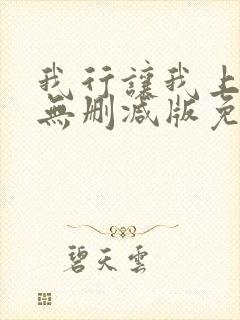 我行讓我上
無刪減版免
碧天雲